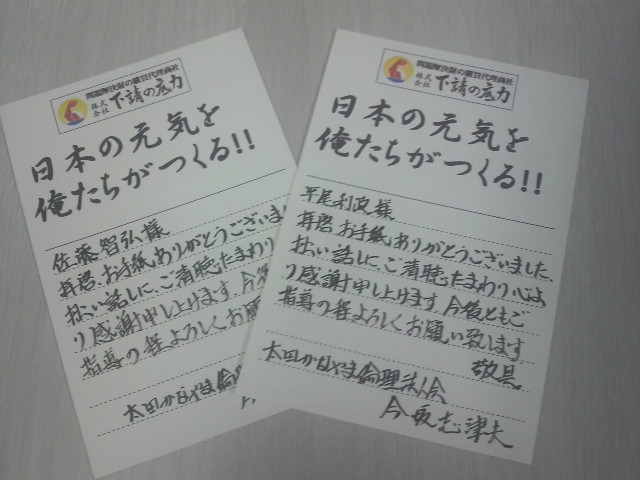 問題解決財の購買代理商社
株式会社 下請の底力
日本の元気を
俺たちがつくる!!
佐藤智弘様
拝啓、お手紙ありがとうございまし
拙い話しに、ご清聴たまわり
り感謝申し上げます。今後
指導の程よろしくお願
太田かなやま倫
問題解決財の購買代理商社
株式会社 下請の底力
日本の元気を
俺たちがつくる!!
平尾利政様
拝啓、お手紙ありがとうございました、
拙い話しに、ご清聴たまわり心よ
り感謝申し上げます。今後ともご
指導の程よろしくお願い致します。
敬具。
太田かなやま倫理法人会
今坂志津夫